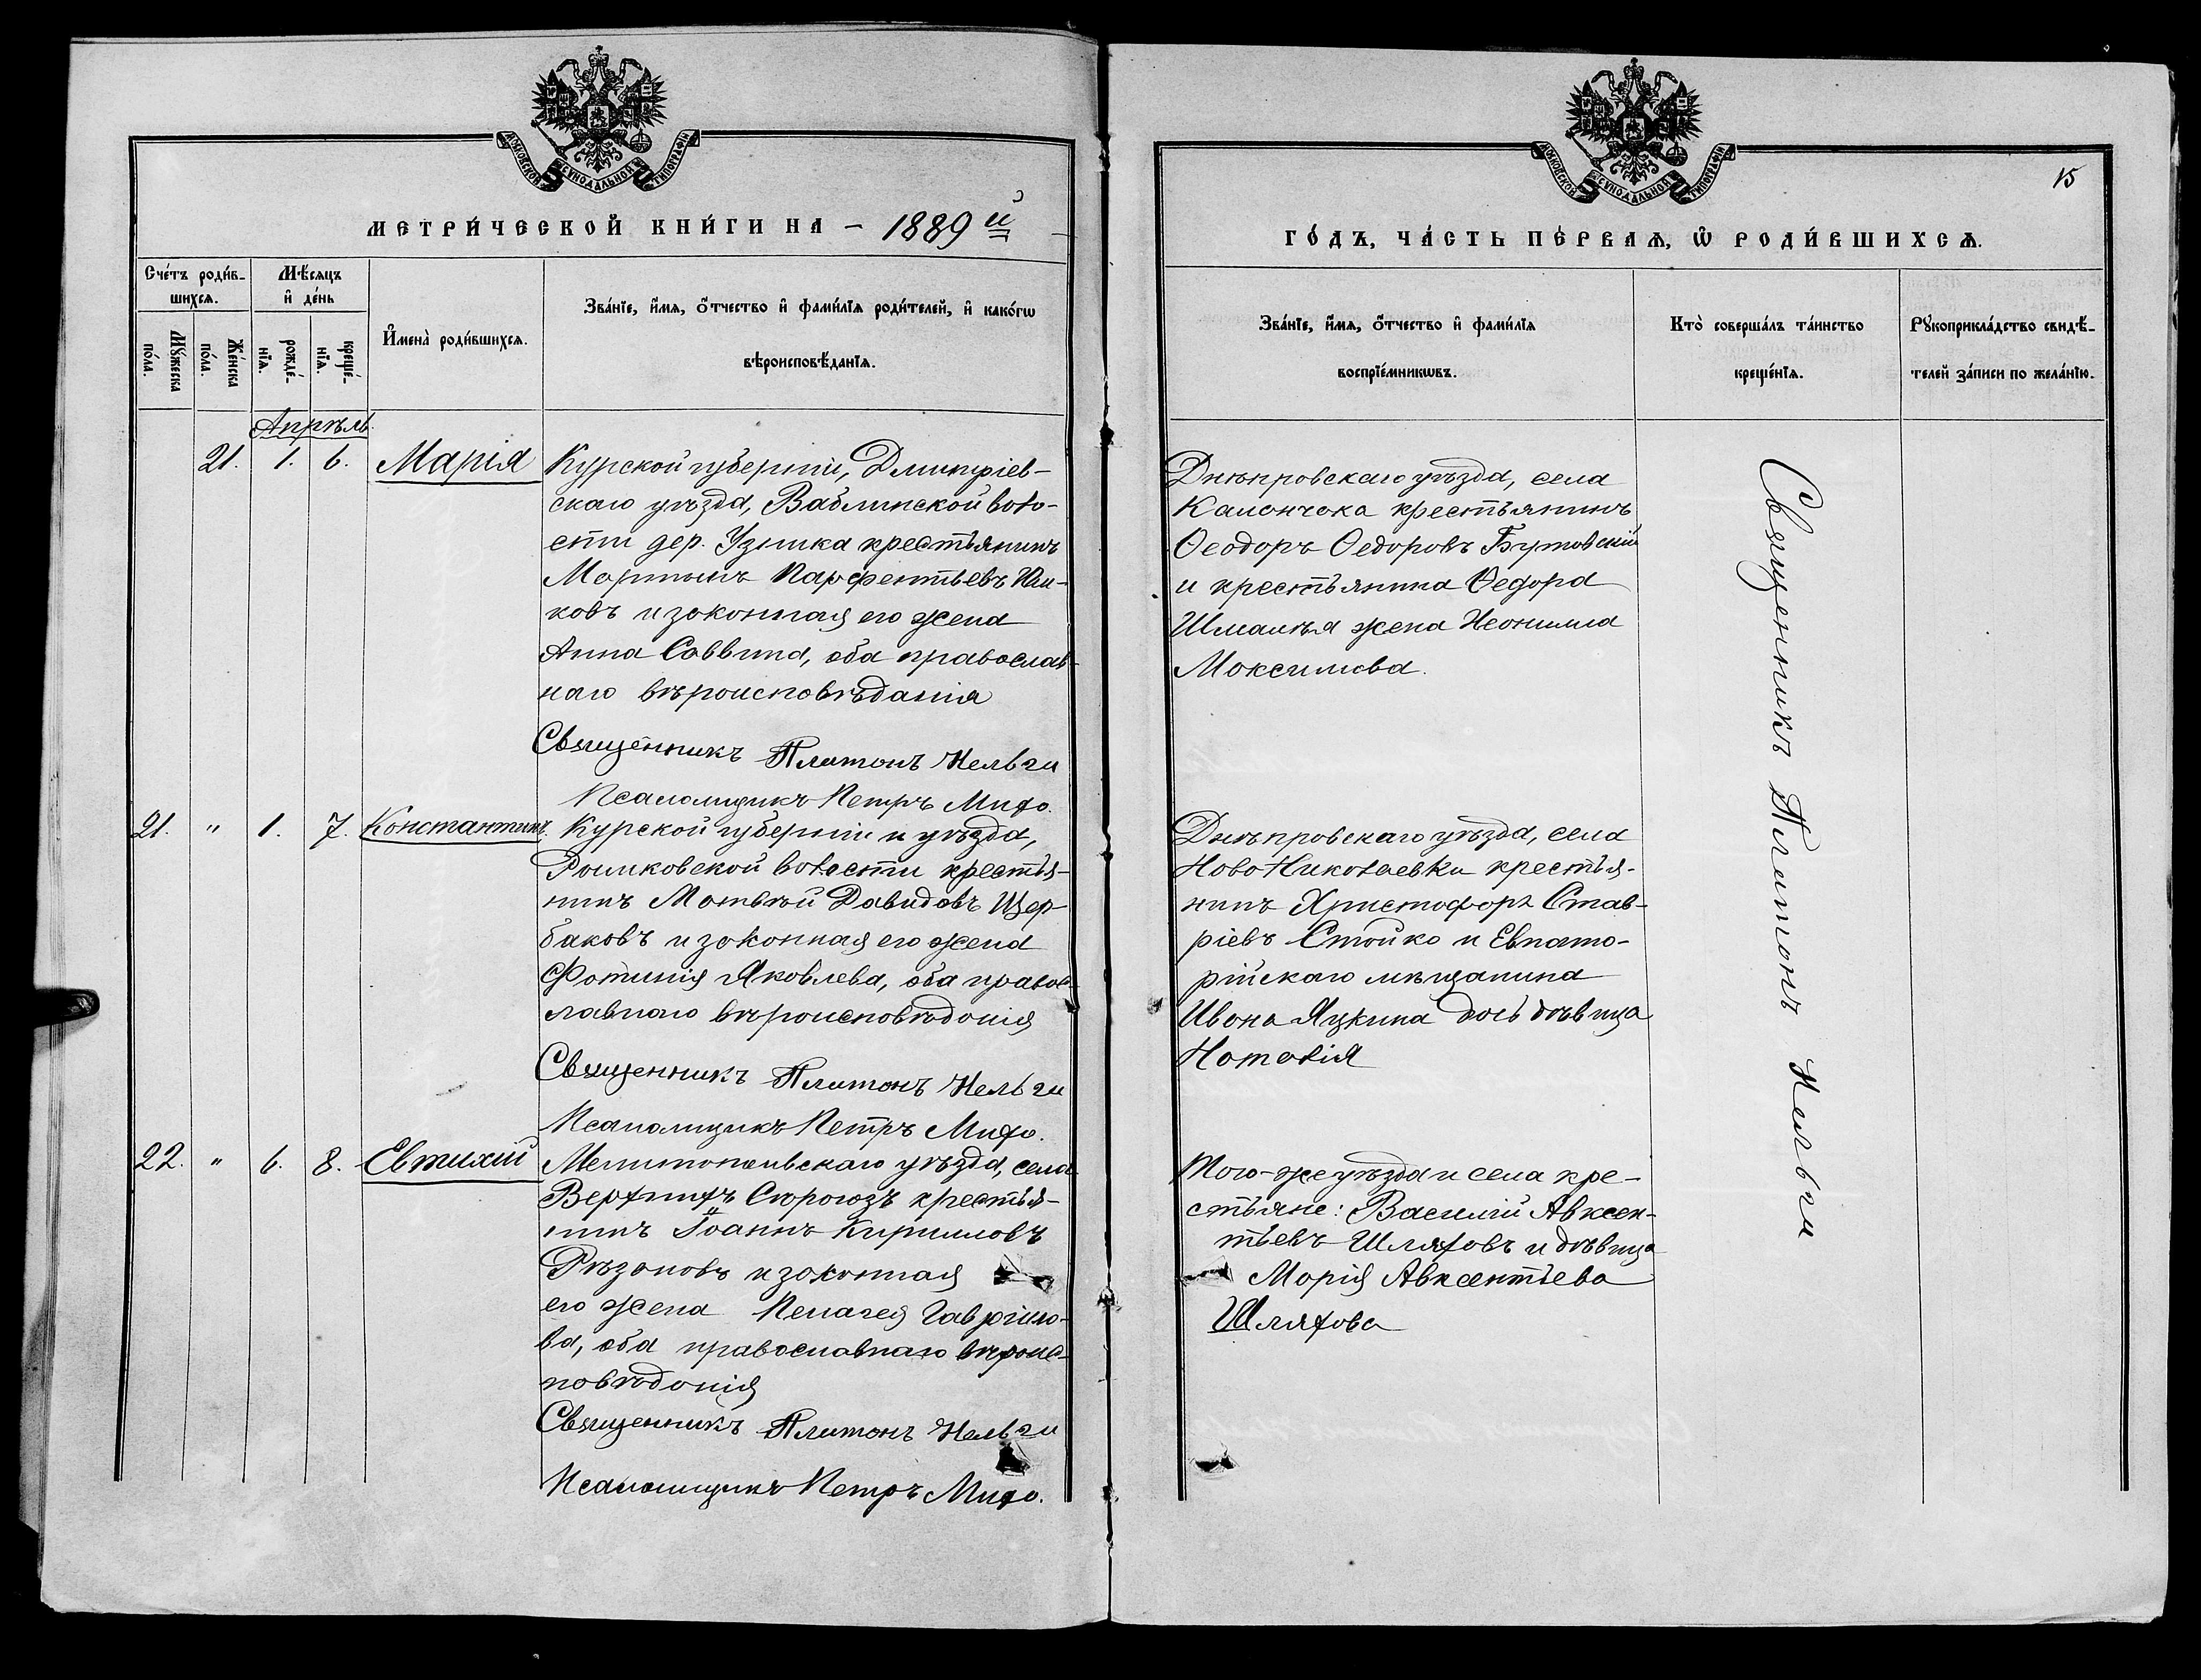 МОСКОВСКОЙ СУНОДАЛЬНОЙ ТИПОГРАФІИ
МЕТРИ́ЧЕСКОЙ КНИ́ГИ НА – 1889 й
Сче́тъ роди́в-
шихсѧ.
Мѣ́сяцъ
и҆ де́нь
Мꙋ́жеска
по́ла.
Же́нска
по́ла.
рожде́-
нїѧ.
креще́-
нїѧ.
И҆мена̀ роди́вшихсѧ.
Зва́нїе, и҆́мѧ, ѻ҆́тчество и҆ фами́лїѧ роди́телей, и҆ како́гѡ
вѣроисповѣ́данїѧ.
Апрѣль.
21. 1. 6. Марія
Курской губерніи, Дмитріев-
скаго уѣзда, Ваблинской воло-
сти дер. крестьянинъ
Мартынъ Парфентьевъ
ковъ и законная его жена
Анна Саввина, оба православ-
наго вѣроисповѣданія
Священникъ Платонъ Нельги
Псаломщикъ Петръ Мифо.
21. " 1. 7. Константинъ.
Курской губерніи и уѣзда,
волости крестья-
нинъ Матвѣй Давидовъ Щер-
баковъ и законная его жена
Фотинія Яковлева, оба правос-
лавнаго вѣроисповѣданія
Священникъ Платонъ Нельги
Псаломщикъ Петръ Мифо.
22. " 6. 8. Евтихій
Мелитопольскаго уѣзда, села
Верхнихъ Сѣрогозъ крестья-
нинъ Іоаннъ Кирилловъ
Рѣзановъ и законная
его жена Пелагея Гавріило-
ва, оба православнаго вѣроис-
повѣданія
Священникъ Платонъ Нельги
Псаломщикъ Петръ Мифо.
МОСКОВСКОЙ СУНОДАЛЬНОЙ ТИПОГРАФІИ
15
ГО́ДЪ, ЧА́СТЬ ПЕ́РВАѦ, Ѽ РОДИ́ВШИХСѦ.
Зва́нїе, и҆́мѧ, ѻ҆́тчество и҆ фами́лїѧ
воспрїе́мникѡвъ.
Кто̀ соверша́лъ та́инство
креще́нїѧ.
Рꙋкоприкла́дство свидѣ́-
телей за́писи по жела́нїю.
Днѣпровскаго уѣзда, села
Каланчака крестьянинъ
Ѳеодоръ Ѳедоровъ Бутовскій
и крестьянина Ѳедора
жена Неонилла
Максимова.
Днѣпровскаго уѣзда, села
Ново Николаевки крестья-
нинъ Христофоръ Став-
ріевъ Стойко и Евпато-
рійскаго мѣщанина
Ивана Яцкина дочь дѣвица
Наталія
Того-же уѣзда и села кре-
стьяне: Василій Авксен-
тьевъ Шляховъ и дѣвица
Марія Авксентьева
Шляхова
Священникъ Платонъ Нельги